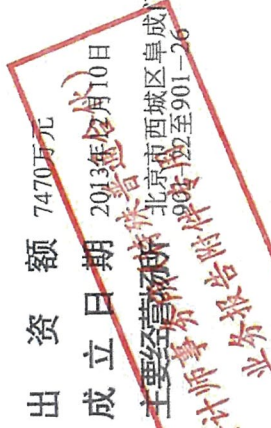 出资额 7470万元
成立日期 2013年12月10日
主要经营场所 北京市西城区阜成门
901-22至901-26
计师事务所（特殊普通合伙）
业务报告附件专用